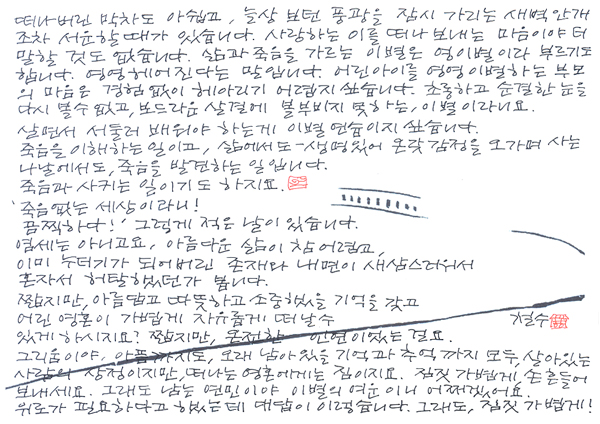 떠나버린 막차도 아쉽고, 늘상 보던 풍광을 잠시 가리는 새벽안개
조차 서운할 때가 있습니다. 사랑하는 이를 떠나 보내는 마음이야 더
말할 것도 없습니다. 삶과 죽음을 가르는 이별은 영이별이라 부르기도
합니다. 영영 헤어진다는 말입니다. 어린아이를 영영 이별하는 부모
의 마음은 경험 없이 헤아리기 어렵지 싶습니다. 초롱하고 순결한 눈을
다시 볼 수 없고, 보드라운 살결에 볼 부비지 못하는, 이별이라니요.
살면서 서둘러 배워야 하는게 이별연습이지 싶습니다.
죽음을 이해하는 일이고, 삶에서도 - 생명 있어 온갖 감정을 오가며 사는
나날에서도, 죽음을 발견하는 일입니다.
죽음과 사귀는 일이기도 하지요.
'죽음없는 세상이라니!
끔찍하다!' 그렇게 적은 날이 있습니다.
염세는 아니고요, 아름다운 삶이 참 어렵고,
이미 누더기가 되어버린 존재와 내면이 새삼스러워서
혼자서 허탈했던가 봅니다.
짧지만, 아름답고 따뜻하고 소중했을 기억을 갖고
어린 영혼이 가볍게 자유롭게 떠날 수 철수
있게 하시지요? 짧지만, 온전한 인연이 있는 걸요.
그리움이야, 아픔까지도, 오래 남아있을 기억과 추억까지 모두, 살아있는
사람의 상정이지만, 떠나는 영혼에게는 짐이지요. 짐짓 가볍게 손 흔들어
보내세요. 그래도 남는 연민이야 이별의 여운이니 어쩌겠어요.
위로가 필요하다고 했는데 대답이 이렇습니다. 그래도, 짐짓 가볍게!